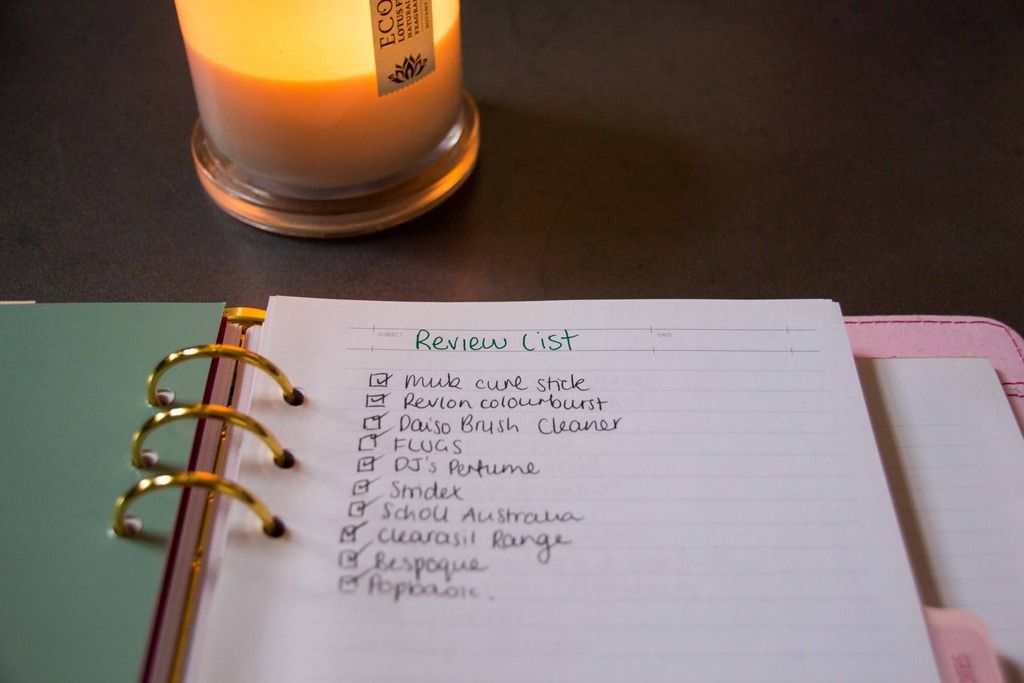 ECO
LOTUS F
NATURAL
FRAGRA
BOTANY
SUBJECT
Review List
DATE
Muk cure stick
Revlon colourburst
Daiso Brush Cleaner
FLUGS
DJ's Perfume
Stridex
Scholl Australia
Clearasil Range
Bespoque